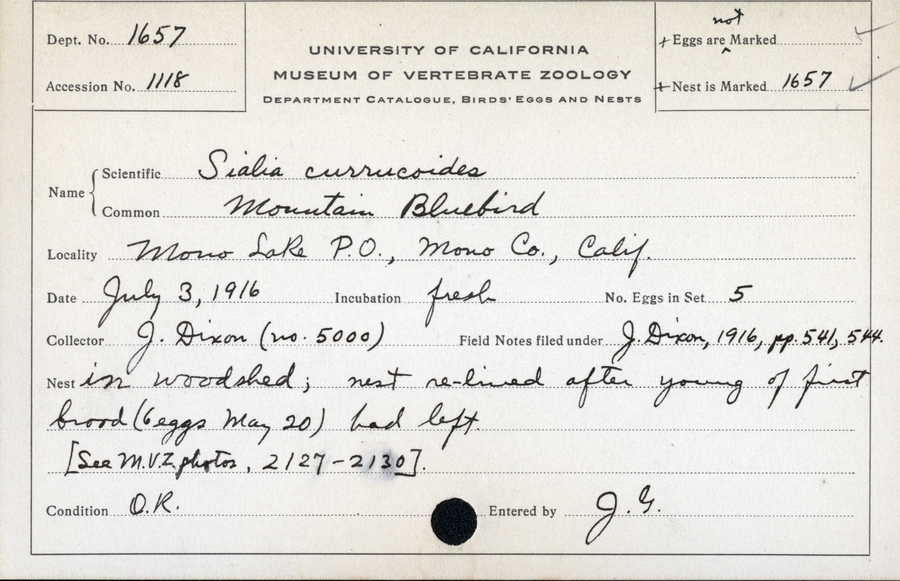 Dept. No. 1657
Accession No. 1118
UNIVERSITY OF CALIFORNIA
MUSEUM OF VERTEBRATE ZOOLOGY
DEPARTMENT CATALOGUE, BIRDS' EGGS AND NESTS
+ Eggs are not Marked
+ Nest is Marked 1657
Name
Scientific Sialia currucoides
Common Mountain Bluebird
Locality Mono Lake P.O., Mono Co., Calif.
Date July 3, 1916 Incubation fresh No. Eggs in Set 5
Collector J. Dixon (no. 5000) Field Notes filed under J. Dixon, 1916, pp. 541, 544.
Nest in woodshed; nest re-lined after young of first
brood (6 eggs May 20) had left.
[See M.V.Z. photos, 2127-2130].
Condition O.K. Entered by J.G.